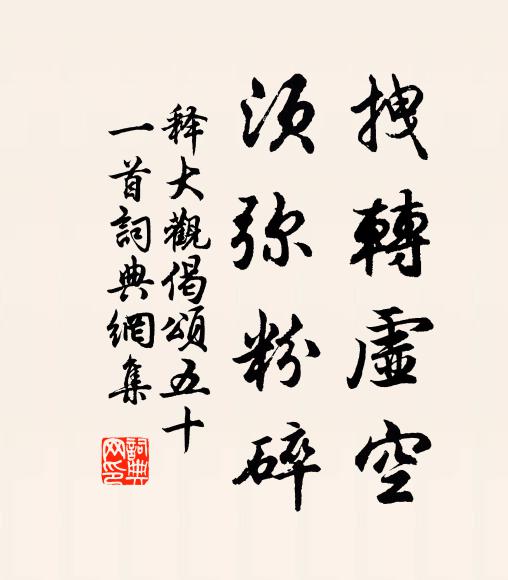 拽轉虛空
須弥粉碎
释大觀偈頌五十
一首詞典網集
詞典网印